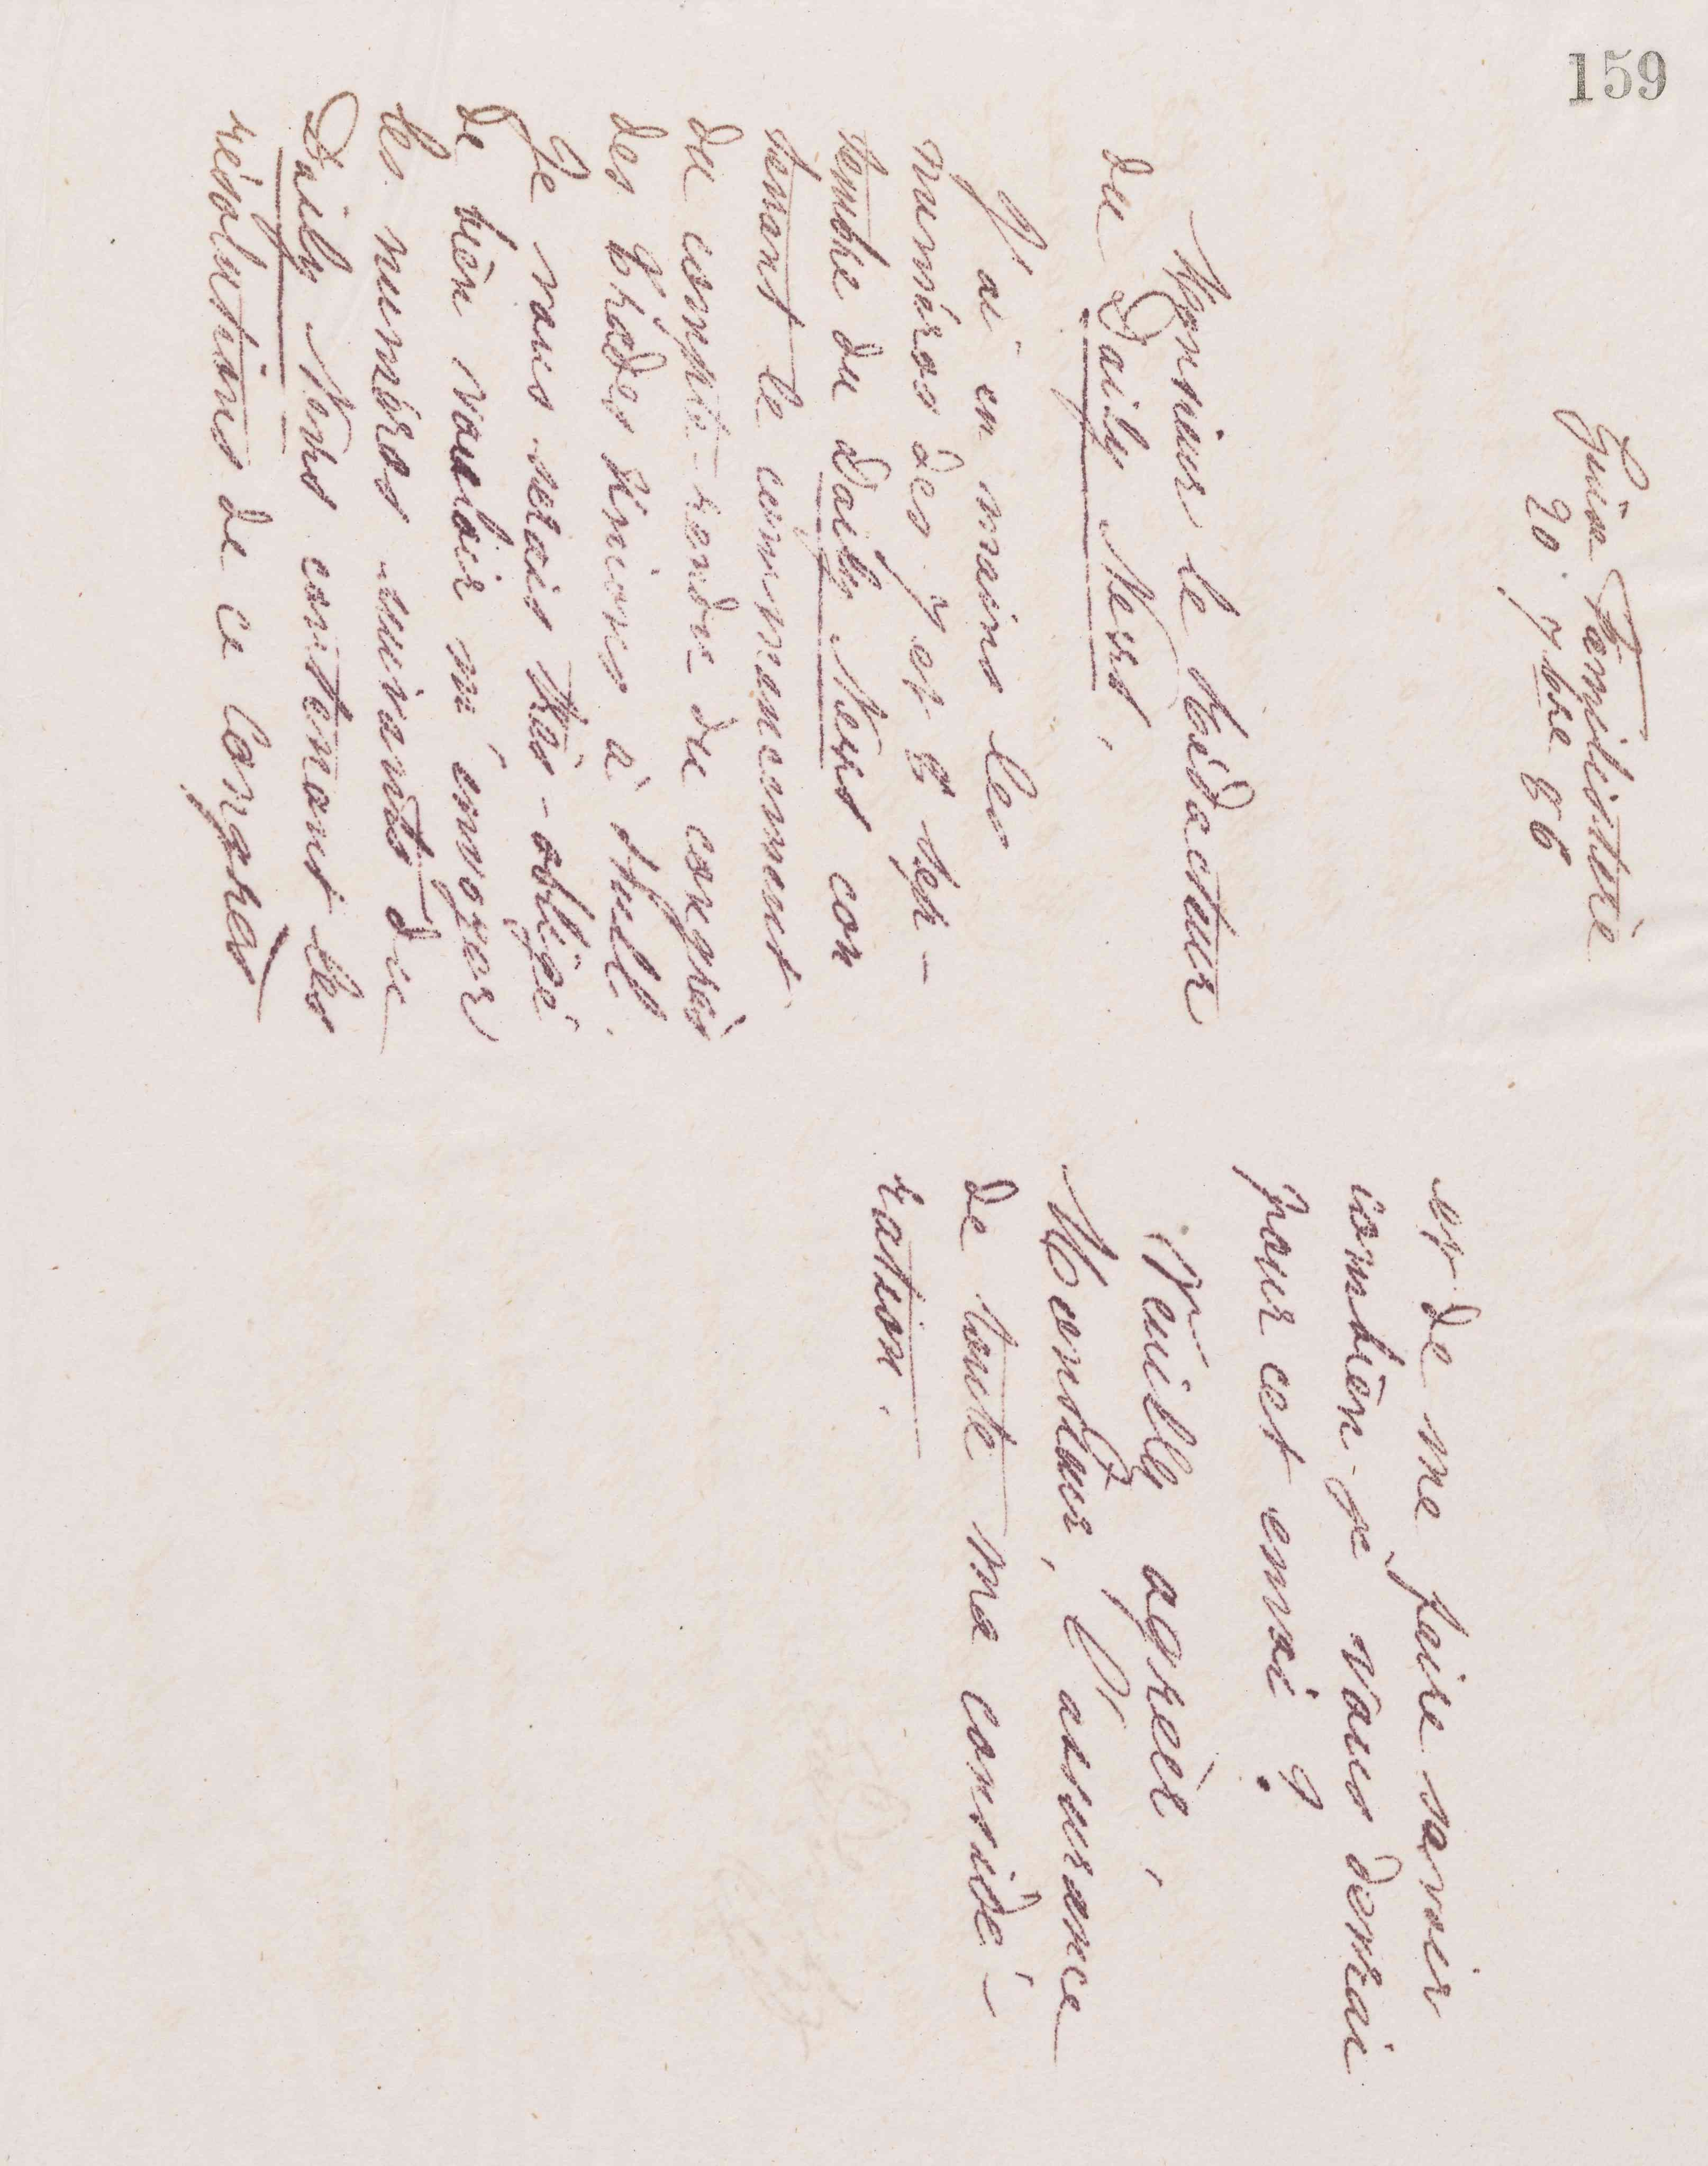 159
Guise Familistère
20 7bre 86
Monsieur le Rédacteur
du Daily News,
J'ai en mains les
numéros des 7 et 8 sep-
tembre du Daily News con
tenant le commencement
du compte-rendu du congrès
des Trades Unions à Hull.
Je vous serais très-obligé
de bien vouloir m'envoyer
les numéros suivants du
Daily News contenant les
résolutions de ce Congrès
et de me faire savoir
combien je vous devrai
pour cet envoi ?
Veuillez agréer,
Monsieur, l'assurance
de toute ma considé-
ration.